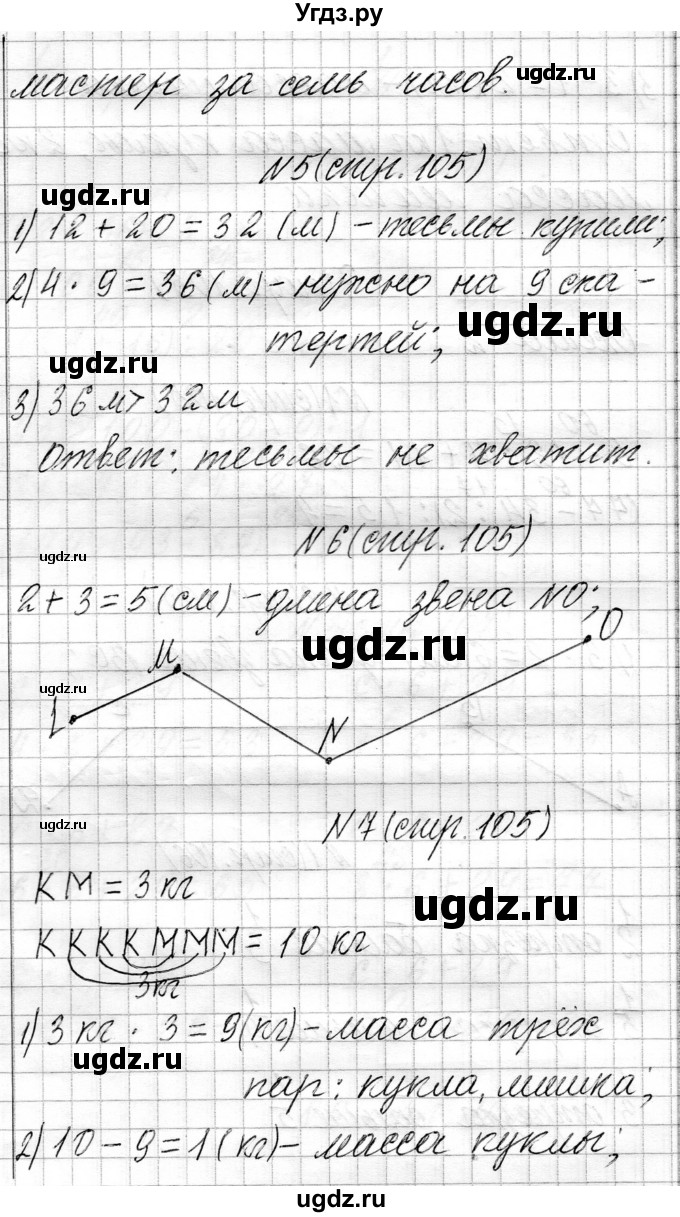 Угдз.ру
мастер за семь часов. ugdz.ru
N5(стр. 105)
ugdz.ru
1) 12 + 20 = 32 (м) - тесьмы купили;
2) 4 · 9 = 36 (м) - нужно на 9 ска-
ugdz.ru
тертей;
ugdz.ru
3) 36 м > 32 м
Ответ: тесьмы не хватит.
N6(стр. 105)
ugdz.ru
2 + 3 = 5 (см) - длина звена NO;
O
ugdz.ru
M
ugdz.ru
L
N
N7(стр. 105)
ugdz.ru
КМ = 3 кг
ugdz.ru
ККККМММ = 10 кг
3кг
1) 3 кг · 3 = 9(кг) - масса трёх
ugdz.ru
пар: кукла, мишка;
2) 10 - 9 = 1 (кг) - масса куклы;
ugdz.ru